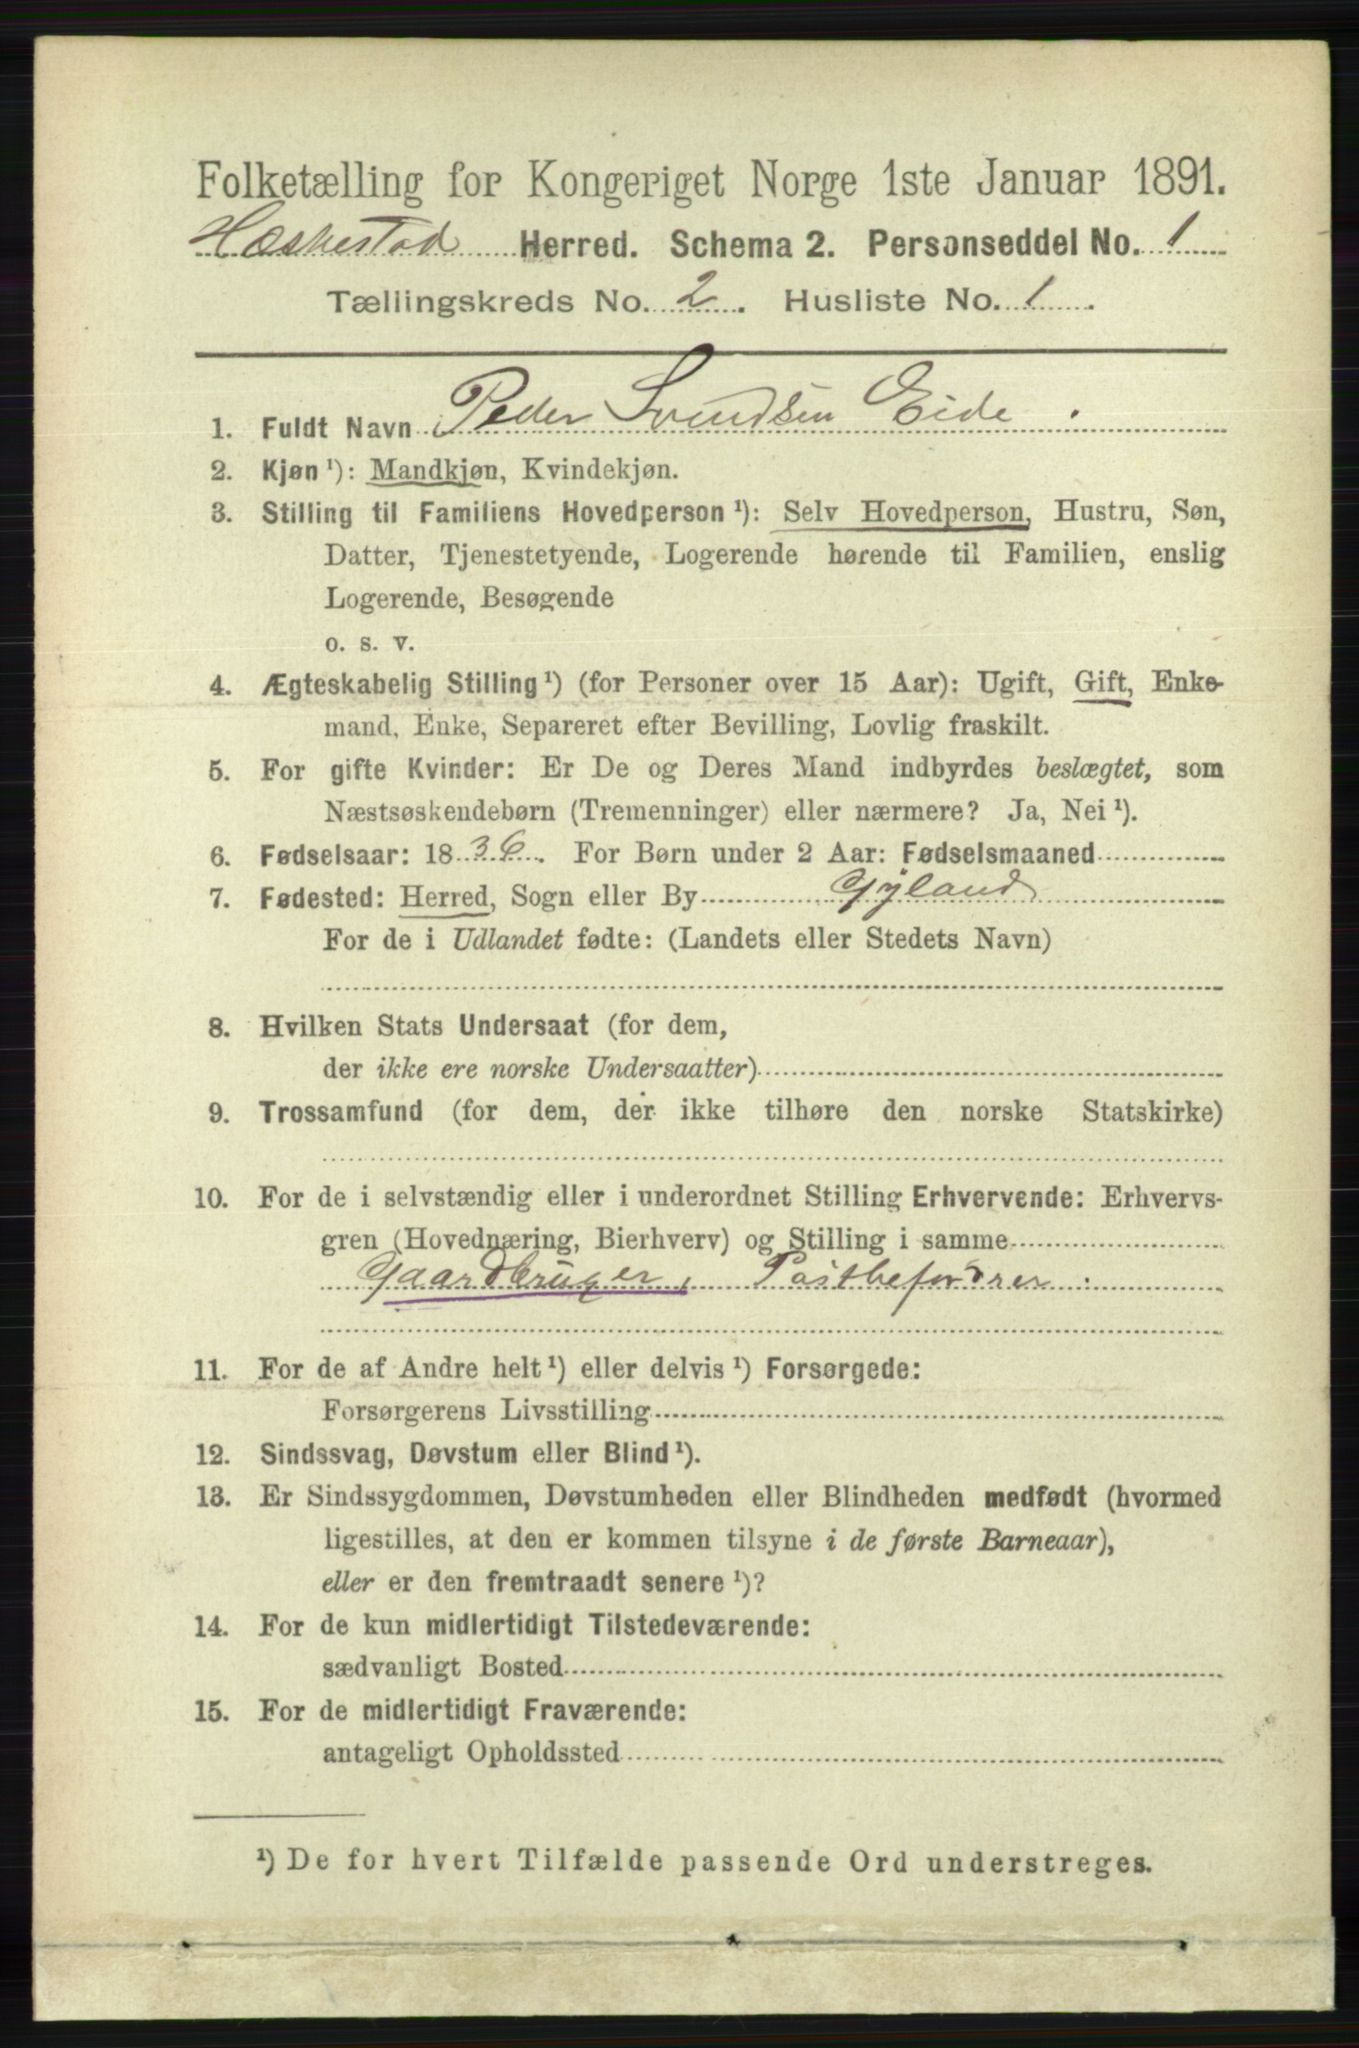 Folketælling for Kongeriget Norge 1ste Januar 1891.
Hæskestad Herred. Schema 2. Personseddel No. 1
Tællingskreds No. 2. Husliste No. 1.
1. Fuldt Navn Peder Svendsen Eide.
2. Kjøn ¹): Mandkjøn, Kvindekjøn.
3. Stilling til Familiens Hovedperson ¹): Selv Hovedperson, Hustru, Søn,
Datter, Tjenestetyende, Logerende hørende til Familien, enslig
Logerende, Besøgende
o. s. v.
4. Ægteskabelig Stilling ¹) (for Personer over 15 Aar): Ugift, Gift, Enke-
mand, Enke, Separeret efter Bevilling, Lovlig fraskilt.
5. For gifte Kvinder: Er De og Deres Mand indbyrdes beslægtet, som
Næstsøskendebørn (Tremenninger) eller nærmere? Ja, Nei ¹).
6. Fødselsaar: 1836. For Børn under 2 Aar: Fødselsmaaned
7. Fødested: Herred, Sogn eller By Gyland
For de i Udlandet fødte: (Landets eller Stedets Navn)
8. Hvilken Stats Undersaat (for dem,
der ikke ere norske Undersaatter)
9. Trossamfund (for dem, der ikke tilhøre den norske Statskirke)
10. For de i selvstændig eller i underordnet Stilling Erhvervende: Erhvervs-
gren (Hovednæring, Bierhverv) og Stilling i samme
Gaardbruger, Postbefordrer.
11. For de af Andre helt ¹) eller delvis ¹) Forsørgede:
Forsørgerens Livsstilling
12. Sindssvag, Døvstum eller Blind ¹).
13. Er Sindssygdommen, Døvstumheden eller Blindheden medfødt (hvormed
ligestilles, at den er kommen tilsyne i de første Barneaar),
eller er den fremtraadt senere ¹)?
14. For de kun midlertidigt Tilstedeværende:
sædvanligt Bosted
15. For de midlertidigt Fraværende:
antageligt Opholdssted
¹) De for hvert Tilfælde passende Ord understreges.